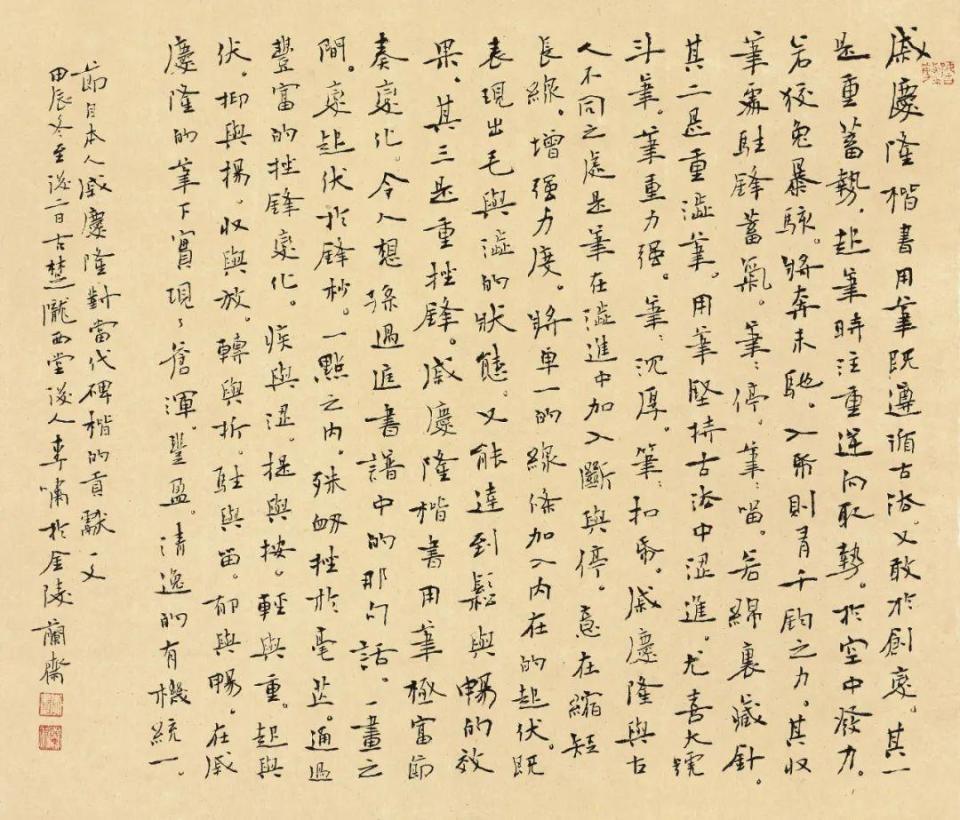 戚慶隆楷書用筆既遵循古法。又敢於創變。其一
是重蓄勢，起筆時注重逆向取勢。於空中發力。
若狡兔暴駭。將奔未馳。入紙則有千鈞之力。其收
筆處駐鋒蓄氣。筆:停。筆:留。若綿裏藏針。
其二是重澁筆。用筆堅持古法中澀進。尤喜大號
斗筆。筆重力强。筆:沉厚。筆:扣紙。戚慶隆與古
人不同之處是筆在澁進中加入斷與停。意在縮短
長線。增强力度。將单一的線條加入内在的起伏。既
表現出毛與澁的狀態。又能達到鬆與暢的效
果。其三是重挫鋒。戚慶隆楷書用筆極富節
奏變化。令人想孫過庭書譜中的那句話。一畫之
間。變起伏於鋒杪。一點之内。殊衂挫於毫芒。通過
豐富的挫鋒變化。疾與澀。提與按。輕與重。起與
伏。抑與揚。收與放。轉與折。駐與留。郁與暢。在戚
慶隆的筆下實現了蒼渾。豐盈。清逸的有機統一。
節目本人戚慶隆對當代碑楷的貢獻一文
甲辰冬至後二日古楚隴西堂後人李啸於金陵蘭齋